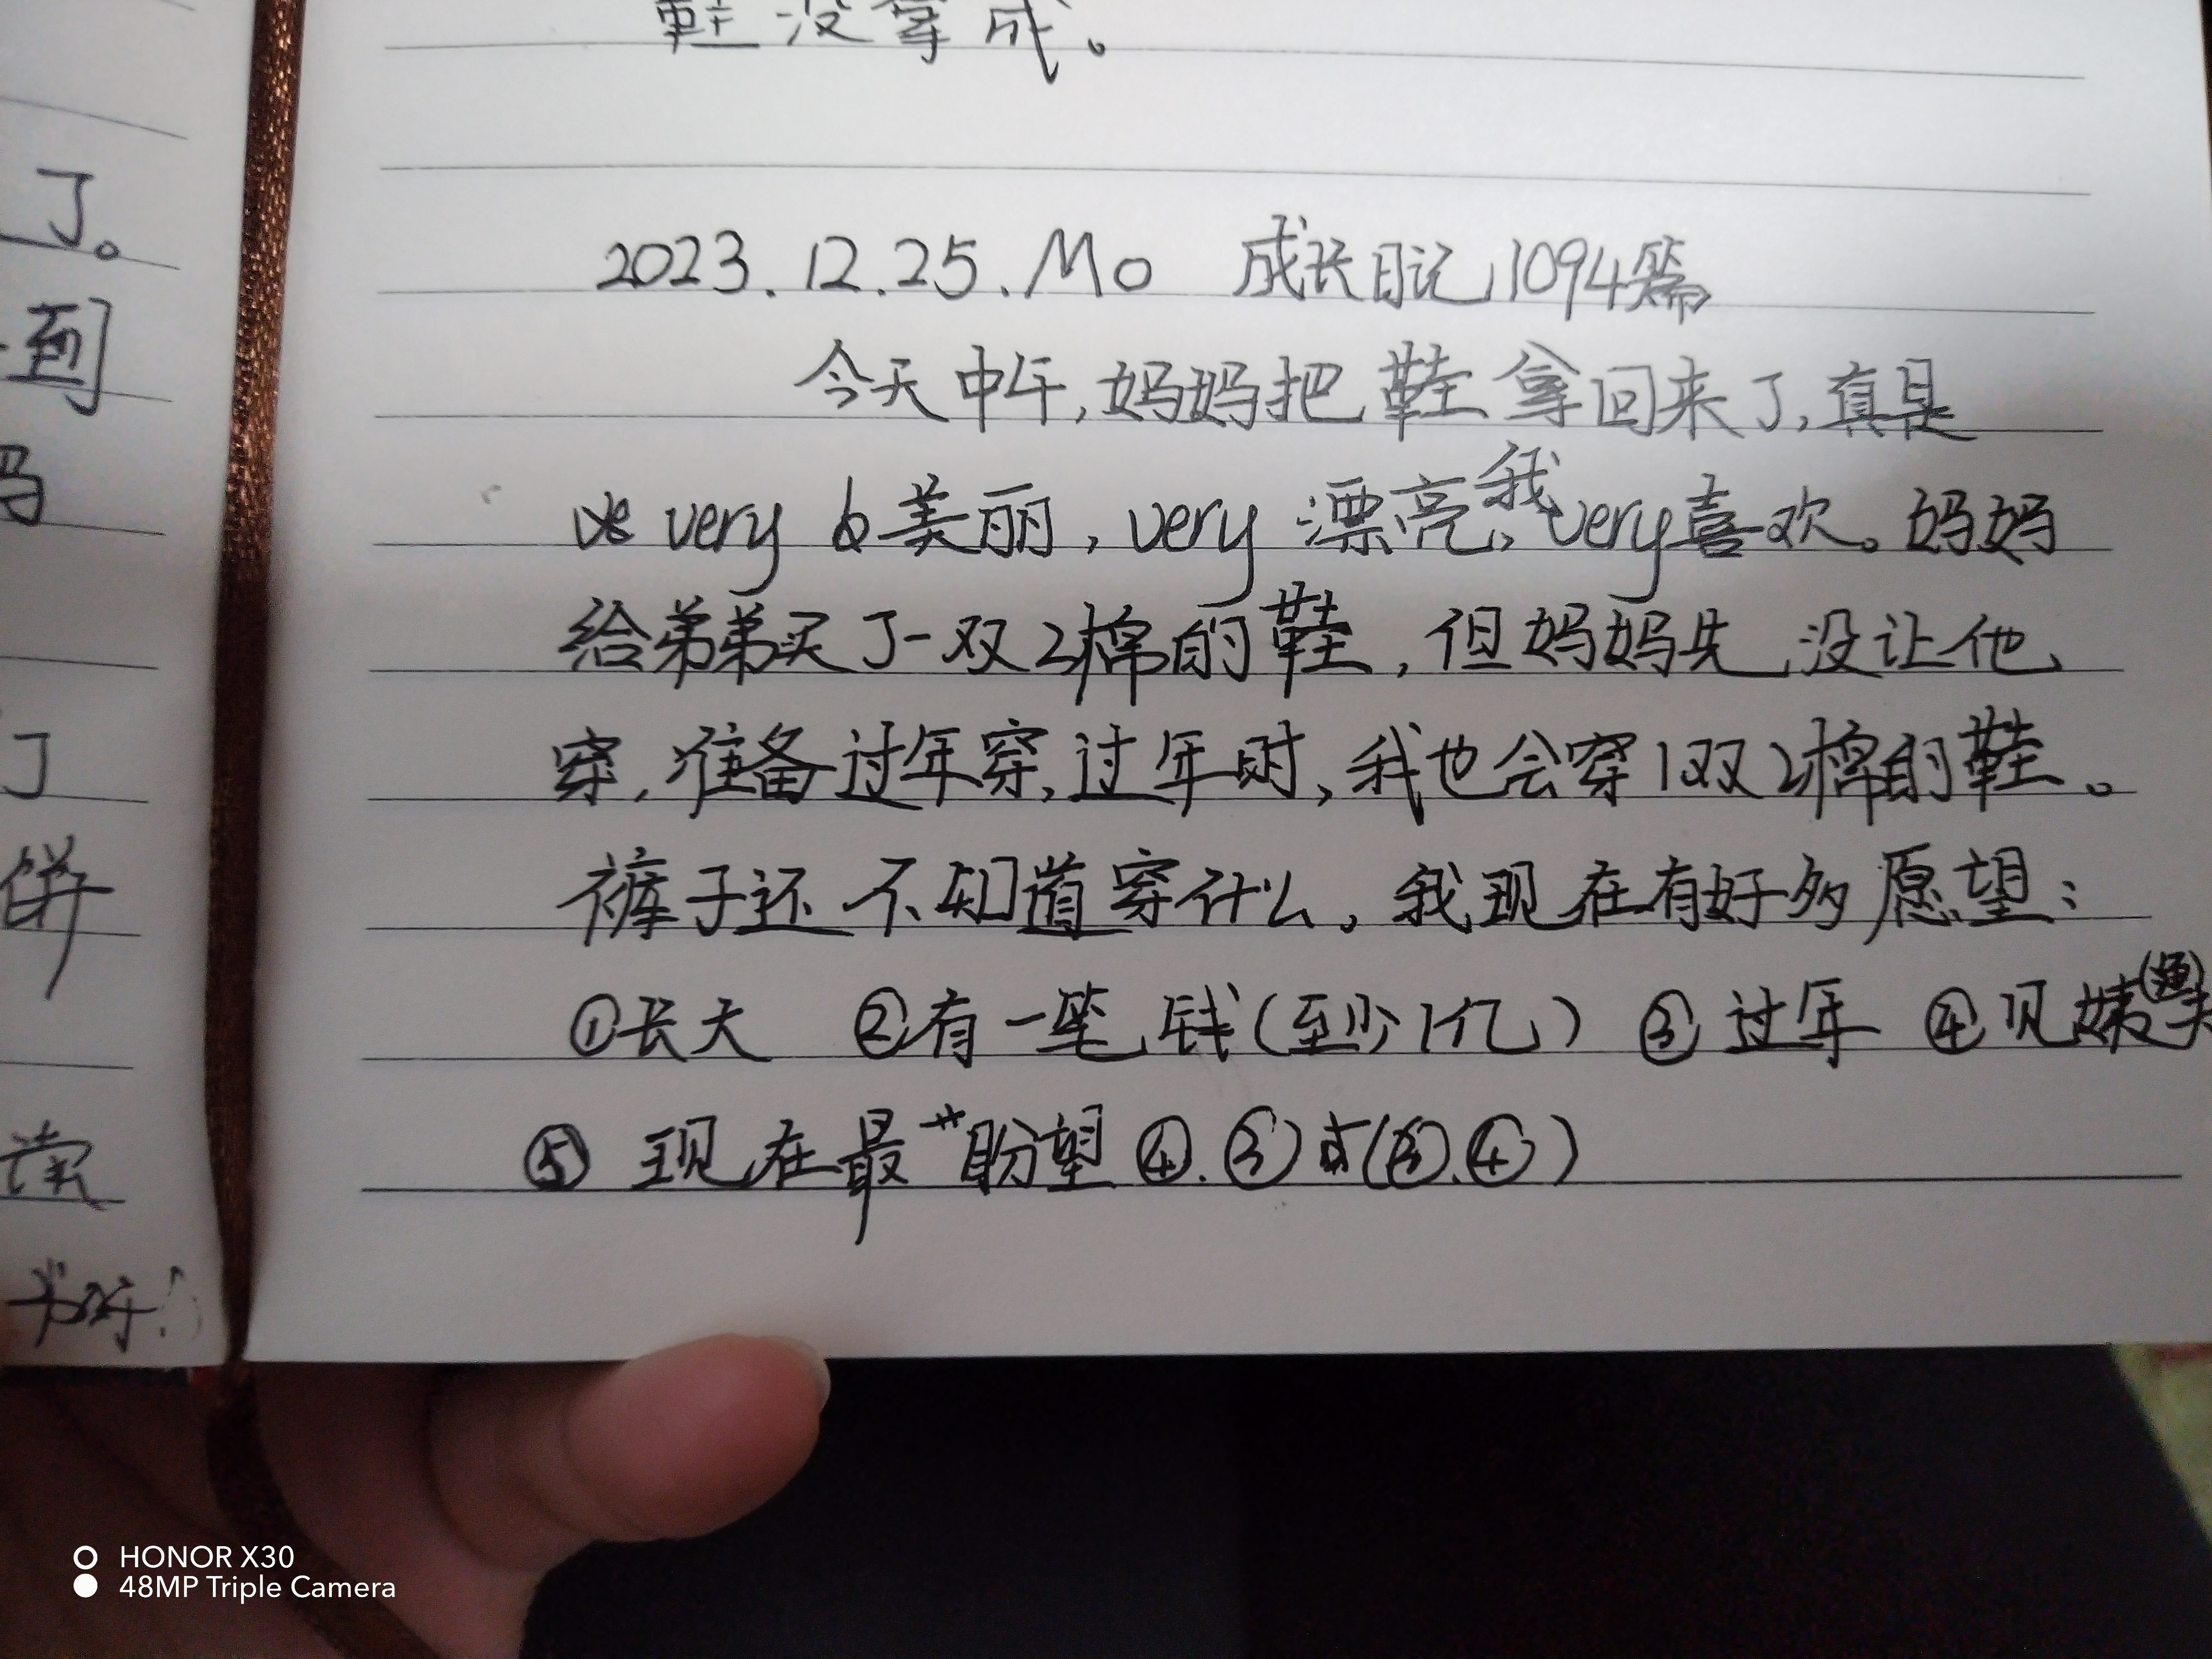 鞋没拿成。
了。
到
妈
了
饼
2023.12.25.Mo 成长日记1094篇
今天中午,妈妈把鞋拿回来了,真是
very 美丽,very 漂亮,我very喜欢。妈妈
给弟弟买了一双2棉的鞋,但妈妈先没让他
穿,准备过年穿,过年时,我也会穿1双2棉的鞋。
裤子还不知道穿什么,我现在有好多愿望:
①长大 ②有一笔钱(至少1亿) ③过年 ④见姨
⑤现在最盼望④.③ (③.④)
HONOR X30
48MP Triple Camera